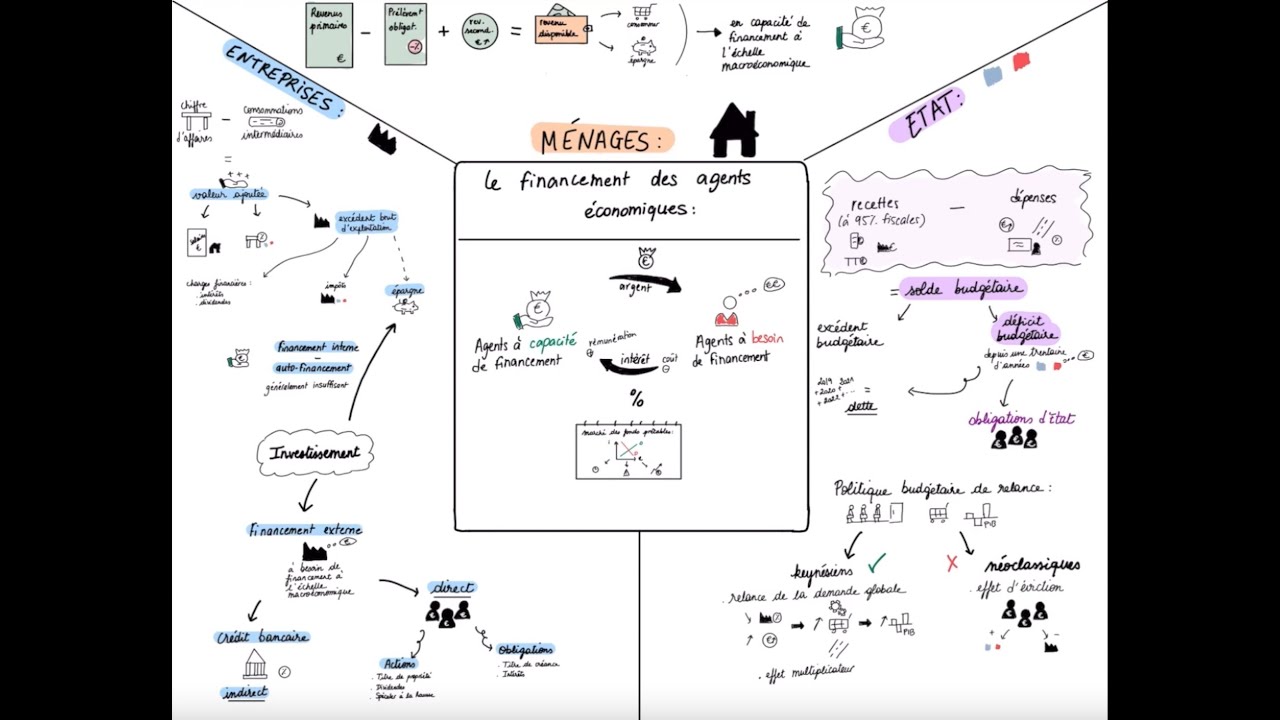 Revenus
primaires
€
-
Prélèvent
obligat.
+
rev.
second.
€↑
=
revenu
disponible
consommer
épargne
en capacité de
financement à
l'échelle
macroéconomique
€
ENTREPRISES :
chiffre
d'affaires
-
consommations
intermédiaires
=
+++
valeur ajoutée
excédent brut
d'exploitation
charges financières :
. intérêts
. dividendes
impôts
épargne
Financement interne
=
auto-financement
généralement insuffisant
Investissement
Financement externe
à besoin de
financement à
l'échelle
macroéconomique
Crédit bancaire
indirect
direct
Actions
. Titre de propriété
. Dividendes
. Spéculer à la hausse
Obligations
. Titre de créance
. Intérêts
MÉNAGES :
Le financement des agents
économiques :
€
argent
€€
Agents à capacité
de financement
rémunération
intérêt
coût
Agents à besoin
de financement
%
marché des fonds prêtables :
ETAT :
recettes
(à 95% fiscales)
-
dépenses
= solde budgétaire
excédent
budgétaire
déficit
budgétaire
depuis une trentaine
d'années
2019 2021
+2020 + ...
+ 2022 + ...
=
dette
obligations d'État
Politique budgétaire de relance :
PIB
keynésiens
. relance de la demande globale
PIB
. effet multiplicateur
néoclassiques
. effet d'éviction
+
-